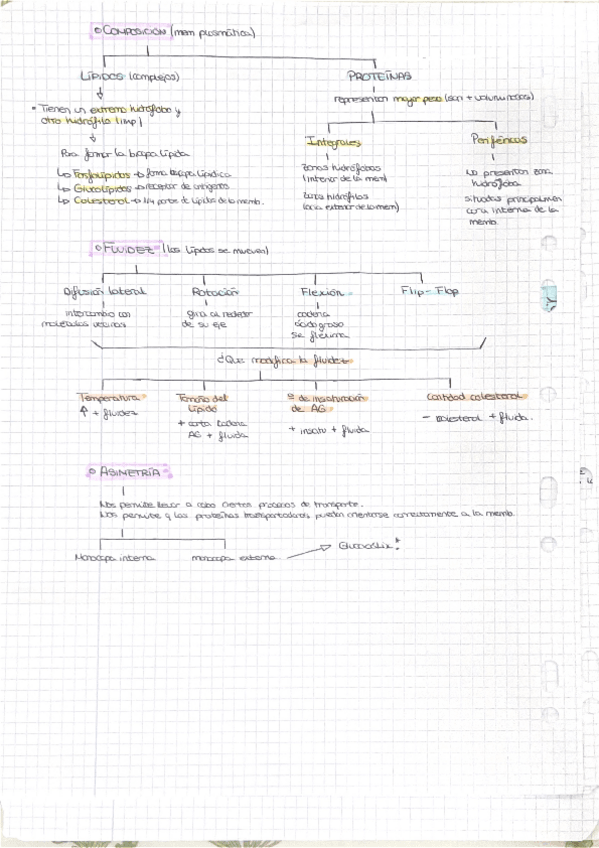 COMPOSICIÓN (mem plasmática)
LÍPIDOS (complejos)
PROTEÍNAS
Tienen un extremo hidrófobo y
otro hidrófilo (imp)
representan mayor peso (son + voluminosas)
Integrales
Periféricas
Para formar la bicapa lipídica
zonas hidrófobas
(interior de la mem)
No presentan zona
hidrófoba
Fosfolípidos → forma bicapa lipídica
Glucolípidos → receptor de antígeno
Colesterol → 1/4 partes de lípidos de la memb.
zona hidrófilas
(cara exterior de la mem)
situadas principalmen
cara interna de la
memb.
FLUIDEZ (los lípidos se mueven)
Difusión lateral
Rotación
Flexión
Flip-Flop
intercambio con
moléculas vecinas
gira alrededor
de su eje
cadena
ácido graso
se flexiona
¿Que modifica la fluidez
Temperatura
↑ + fluidez
Tamaño del
lípido
+ corta cadena
AG + fluida
º de insaturación
de AG
+ insatu + fluida
Cantidad colesterol
- colesterol + fluida.
ASIMETRÍA
Nos permite llevar a cabo ciertos procesos de transporte.
Nos permite q las proteínas transportadoras puedan orientarse correctamente a la memb.
Monocapa interna
monocapa externa